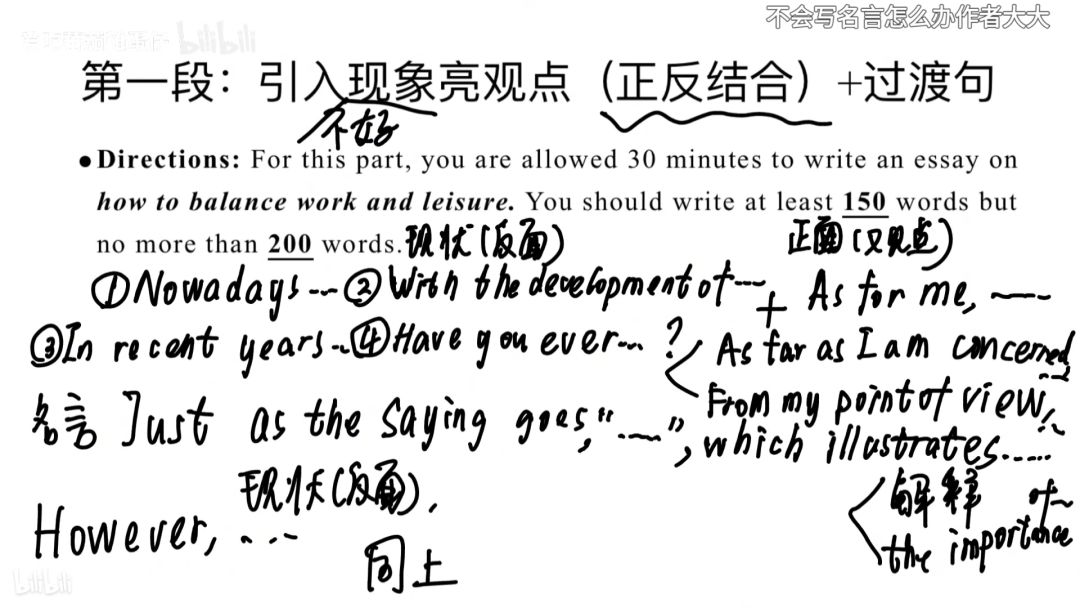 不会写名言怎么办作者大大
bilibili
第一段：引入现象亮观点（正反结合）+过渡句
不好
•Directions: For this part, you are allowed 30 minutes to write an essay on
how to balance work and leisure. You should write at least 150 words but
no more than 200 words. 现状(反面) 正面(义观点)
①Nowadays... ②With the development of... + As for me, ——
③In recent years... ④Have you ever...? As far as I am concerned
From my point of view,
名言 Just as the saying goes, "......", which illustrates......
现状(反面), 解释
However, ... the importance of
同上
bilibili